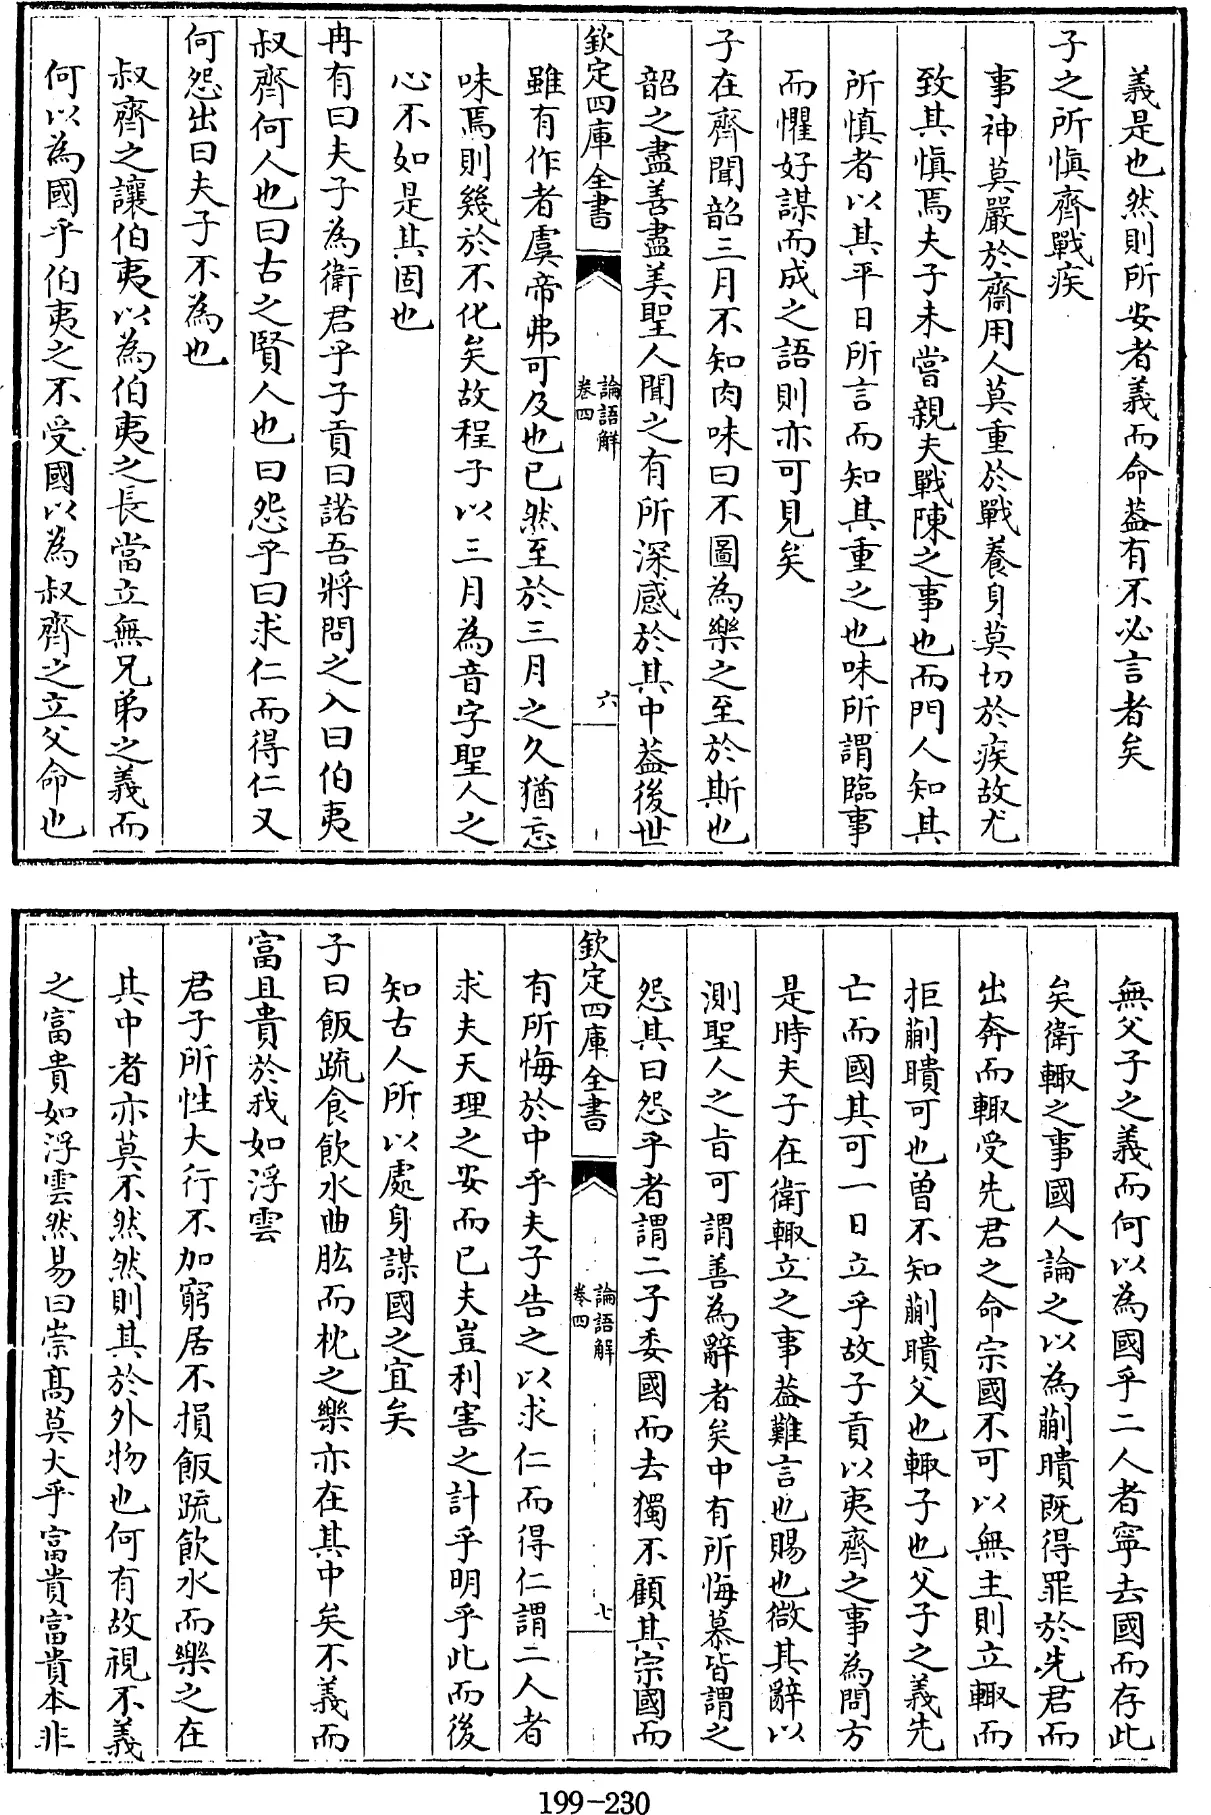 義是也然則所安者義而命葢有不必言者矣
子之所慎齊戰疾
事神莫嚴於齋用人莫重於戰養身莫切於疾故尤
致其慎焉夫子未嘗親夫戰陳之事也而門人知其
所慎者以其平日所言而知其重之也味所謂臨事
而懼好謀而成之語則亦可見矣
子在齊聞韶三月不知肉味曰不圖為樂之至於斯也
韶之盡善盡美聖人聞之有所深感於其中葢後世
欽定四庫全書
論語解
卷四
六
雖有作者虞帝弗可及也已然至於三月之久猶忘
味焉則幾於不化矣故程子以三月為音字聖人之
心不如是其固也
冉有曰夫子為衛君乎子貢曰諾吾將問之入曰伯夷
叔齊何人也曰古之賢人也曰怨乎曰求仁而得仁又
何怨出曰夫子不為也
叔齊之讓伯夷以為伯夷之長當立無兄弟之義而
何以為國乎伯夷之不受國以為叔齊之立父命也
無父子之義而何以為國乎二人者寧去國而存此
矣衛輙之事國人論之以為蒯聵既得罪於先君而
出奔而輙受先君之命宗國不可以無主則立輙而
拒蒯聵可也曽不知蒯聵父也輙子也父子之義先
亡而國其可一日立乎故子貢以夷齊之事為問方
是時夫子在衛輙立之事葢難言也賜也微其辭以
測聖人之旨可謂善為辭者矣中有所悔慕皆謂之
怨其曰怨乎者謂二子委國而去獨不顧其宗國而
欽定四庫全書
論語解
卷四
七
有所悔於中乎夫子告之以求仁而得仁謂二人者
求夫天理之安而已夫豈利害之計乎明乎此而後
知古人所以處身謀國之宜矣
子曰飯疏食飲水曲肱而枕之樂亦在其中矣不義而
富且貴於我如浮雲
君子所性大行不加窮居不損飯疏飲水而樂之在
其中者亦莫不然然則其於外物也何有故視不義
之富貴如浮雲然易曰崇髙莫大乎富貴富貴本非
199-230